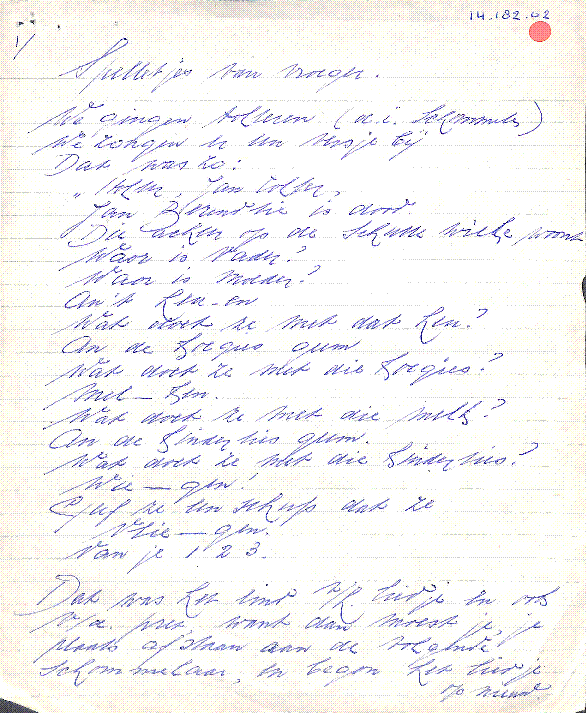 14.182.02
1/
Spelletjes van vroeger.
We gingen tolteren (d.i. schommelen)
We zongen er een versje bij
Dat was zo:
" Tolter, Jan Tolter,
Jan Berendtie is dood.
Die achter op de schutte wieke woont
Waor is vader?
Waor is moeder?
An't heu-en
Wat doet ze met dat heu?
An de koegies geem
Wat doet ze met die koegies?
Mel-ken.
Wat doet ze met die melk?
An de kinderties geem.
Wat doet ze met die kinderties?
Wie-gen!
Geef ze een schup dat ze
vlie-gen.
Van je 1 2 3.
Dat was het eind v/h liedje en ook
v/d pret, want dan moest je je
plaats afstaan aan de volgende
schommelaar, en begon het liedje
op nieuw.